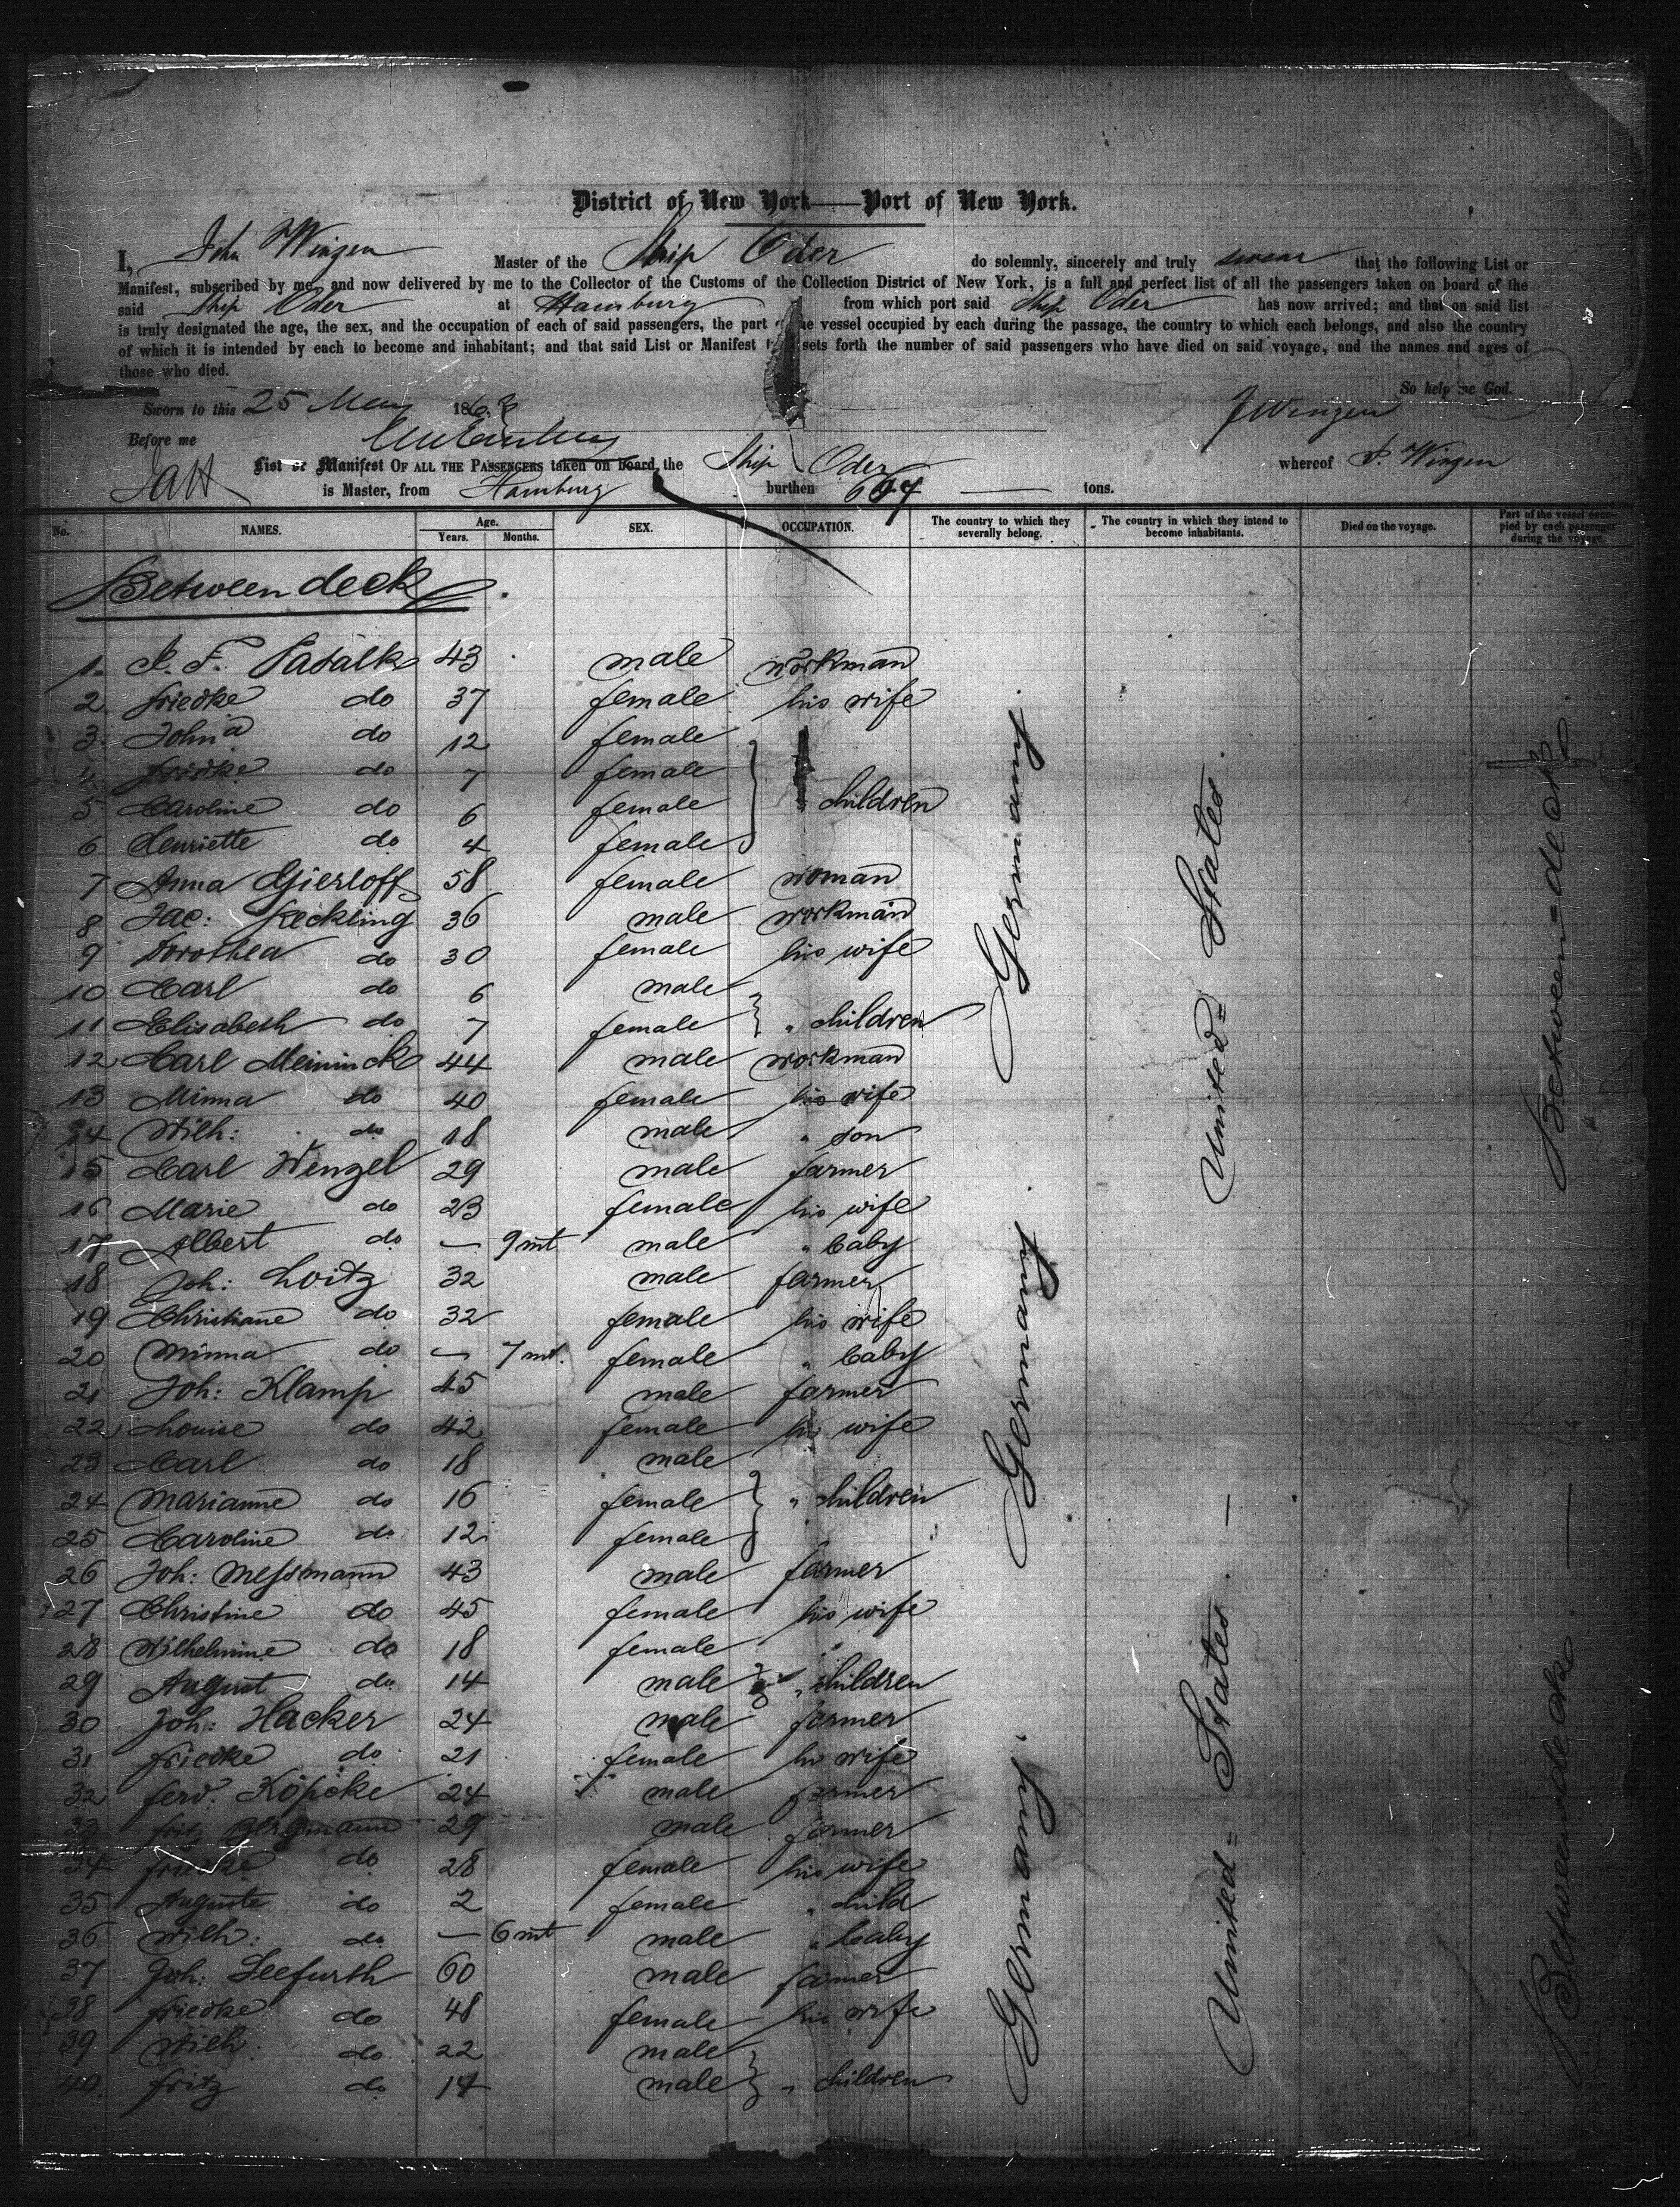 District of New York — Port of New York.
I, John Winzen Master of the Ship Oder do solemnly, sincerely and truly swear that the following List or
Manifest, subscribed by me, and now delivered by me to the Collector of the Customs of the Collection District of New York, is a full and perfect list of all the passengers taken on board of the
said Ship Oder at Hamburg from which port said Ship Oder has now arrived; and that on said list
is truly designated the age, the sex, and the occupation of each of said passengers, the part of the vessel occupied by each during the passage, the country to which each belongs, and also the country
of which it is intended by each to become and inhabitant; and that said List or Manifest sets forth the number of said passengers who have died on said voyage, and the names and ages of
those who died.
So help me God.
Sworn to this 25 May 1863 JWinzen
Before me
List or Manifest OF ALL THE PASSENGERS taken on board the Ship Oder whereof J. Winzen
is Master, from Hamburg burthen tons.
No. NAMES. Age. Years. Months. SEX. OCCUPATION. The country to which they severally belong. The country in which they intend to become inhabitants. Died on the voyage. Part of the vessel occupied by each passenger during the voyage.
Between deck.
1. J. F. Pasalk 43 male workman
2. Friedke do 37 female his wife
3. Johna do 12 female
4. Fridke do 7 female
5 Caroline do 6 female " children
6 Henriette do 4 female
7 Anna Gierloff 58 female woman
8 Jac: Keckling 36 male workman
9 Dorothea do 30 female his wife
10 Carl do 6 male
11 Elisabeth do 7 female " children
12 Carl Meinincke 44 male workman
13 Minna do 40 female his wife
14 Wilh: do 18 male " son
15 Carl Wenzel 29 male farmer
16 Marie do 23 female his wife
17 Albert do — 9 mt male " baby
18 Joh: Loitz 32 male farmer
19 Christiane do 32 female his wife
20 Minna do — 7 mt. female " baby
21 Joh: Klamp 45 male farmer
22 Louise do 42 female his wife
23 Carl do 18 male
24 Marianne do 16 female " children
25 Caroline do 12 female
26 Joh: Messmann 43 male farmer
27 Christine do 45 female his wife
28 Wilhelmine do 18 female
29 August do 14 male " children
30 Joh: Hacker 24 male farmer
31 Friedke do 21 female his wife
32 Ferd. Köpcke 24 male farmer
33 Fritz Bergmann 29 male farmer
34 Friedke do 28 female his wife
35 Auguste do 2 female " child
36 Wilh: do — 6 mt male " baby
37 Joh: Seefurth 60 male farmer
38 Friedke do 48 female his wife
39 Wilh: do 22 male
40. Fritz do 14 male " children
Germany.
Germany
Germany.
United= States.
—
United= States.
Between=deck.
—
Betweendeck.